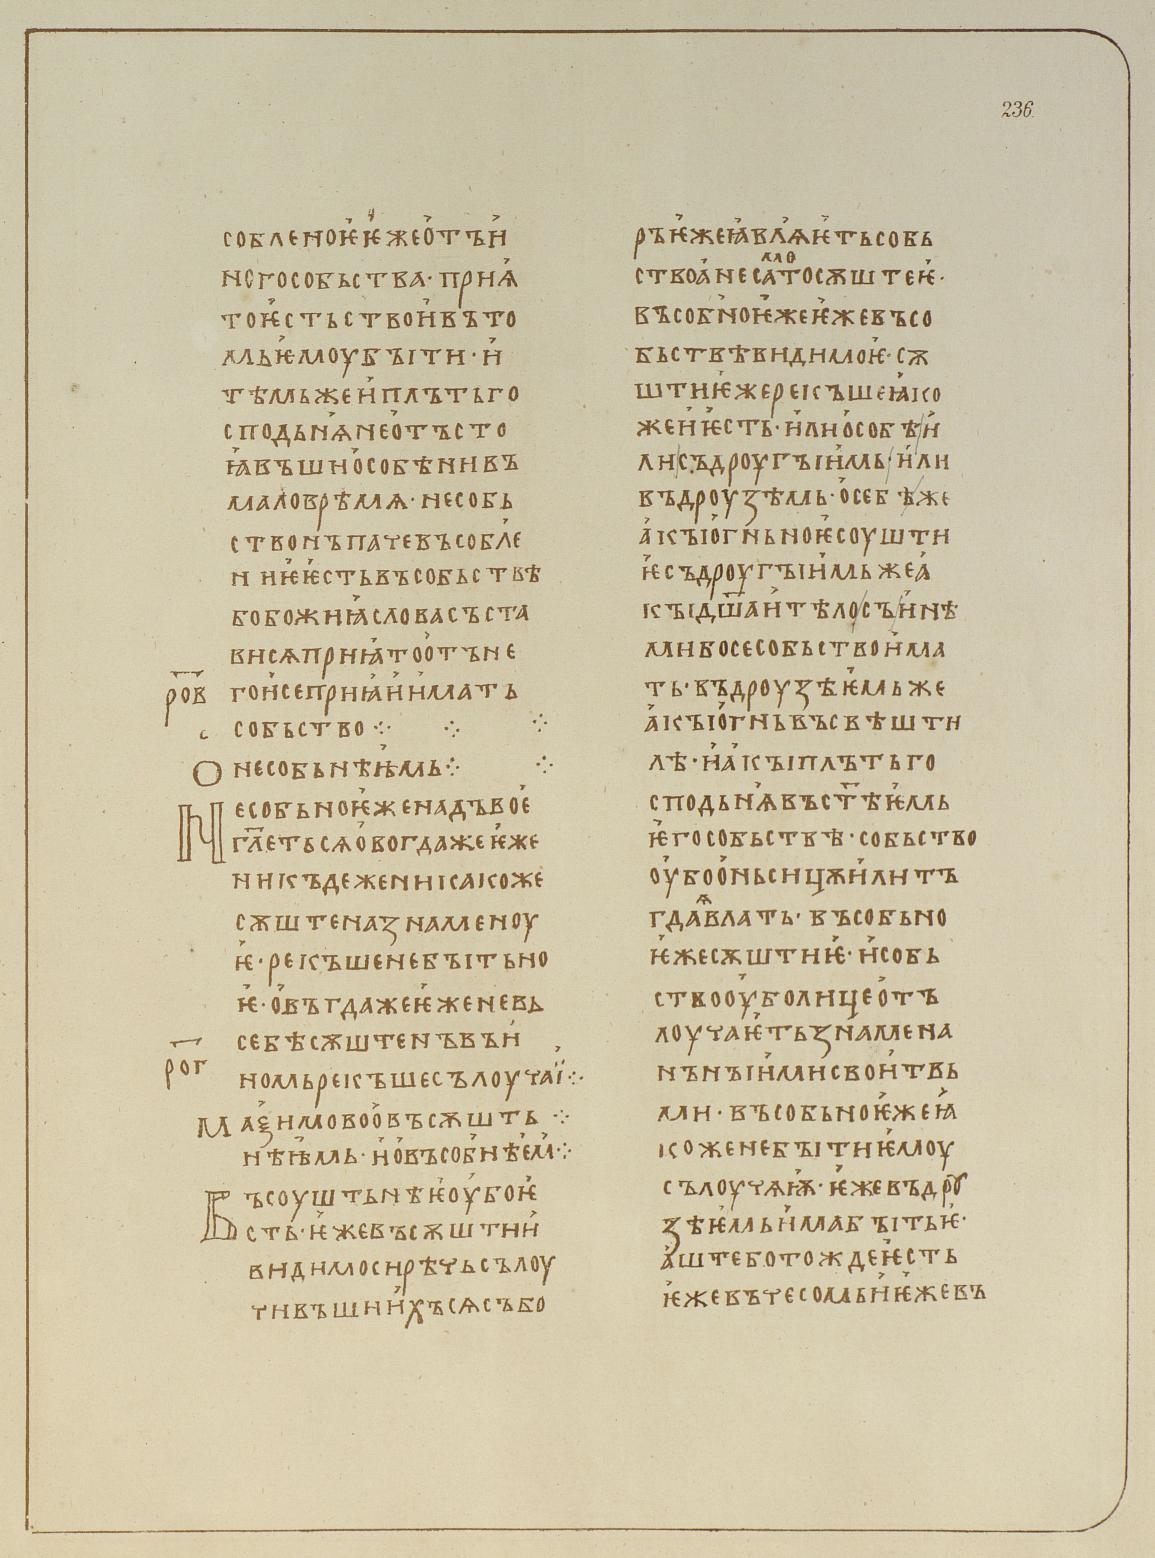 236
собленоѥ ѥже отъ и
ного собьства· приѧ
то ѥстьство и въ то
мь ѥмоу бъіти· и
тѣмьже и плъть го
сподьнꙗ не отъ сто
ꙗвъши особѣ ни въ
мало врѣмѧ· несобь
ство нъ паче въсобле
ниѥ ѥсть въ собьствѣ
бо божиꙗ слова съста
ви сѧ приꙗто отъ не
го и се приꙗ и имать
рог҃в
собьство ⁘ ⁘ ⁘
О несобьнѣѥмь ⁘ ⁘
Несобьноѥ же надъвоѥ
гл҃еть сѧ овогда же ѥже
никъдеже никакоже
сѫште назнаменоу
ѥ· рекъше небъітьно
ѥ· овъгда же ѥже не вь
себѣ сѫште нъ въ и
рог҃г
номь рекъше сълоучаи ⁘
Маѯимово о въсѫшть ⁘
нѣѥмь· и о въсобнѣем ⁘
Въсоуштьнѣѥ оубо ѥ
сть· ѥже въ сѫштии
видимо си рѣчь сълоу
чивъшиихъ сѧ събо
ръ ѥже ꙗвлꙗѥть собь
ство а не само то сѫштеѥ·
въсобноѥ же ѥже въ со
бьствѣ видимоѥ· сѫ
штиѥ же рекъше ꙗко
же и ѥсть· или особѣ и
ли съ дроугъіимь· или
въ дроузѣмь· о себѣ же
акъі огньноѥ соушти
ѥ съ дроугъіимь же а
къі дш҃а и тѣло съ инѣ
ми бо се собьство има
ть· въ дроузѣѥмь же
акъі огнь въ свѣшти
лѣ· и акъі плъть го
сподьнꙗ въ ст҃ѣѥмь
ѥго собьствѣ· собьство
оубо онъсицѫ или тъ
гда ꙗвлꙗть· въсобьно
ѥже сѫштиѥ· и собь
ство оубо лице отъ
лоучаѥть знамена
нъіими своитвь
ми· въсобьноѥ же ꙗ
коже небъіти ѥмоу
сълоучѧѭ· ѥже въ дроу
зѣѥмь има бъітьѥ·
аште бо тожде ѥсть
ѥже въ чесомь и ѥже въ